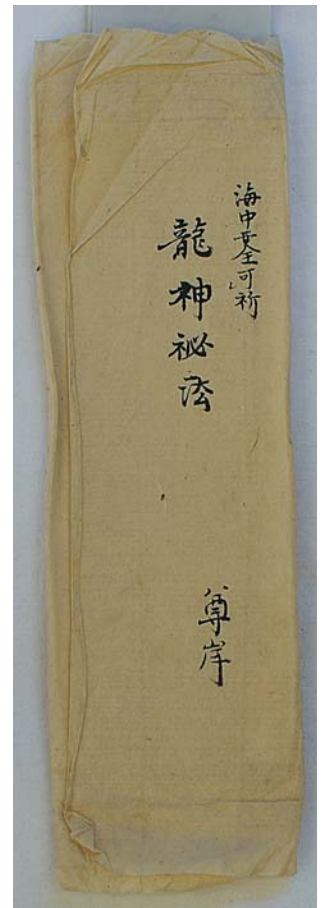 海中安全可祈
龍神祕法
尊岸